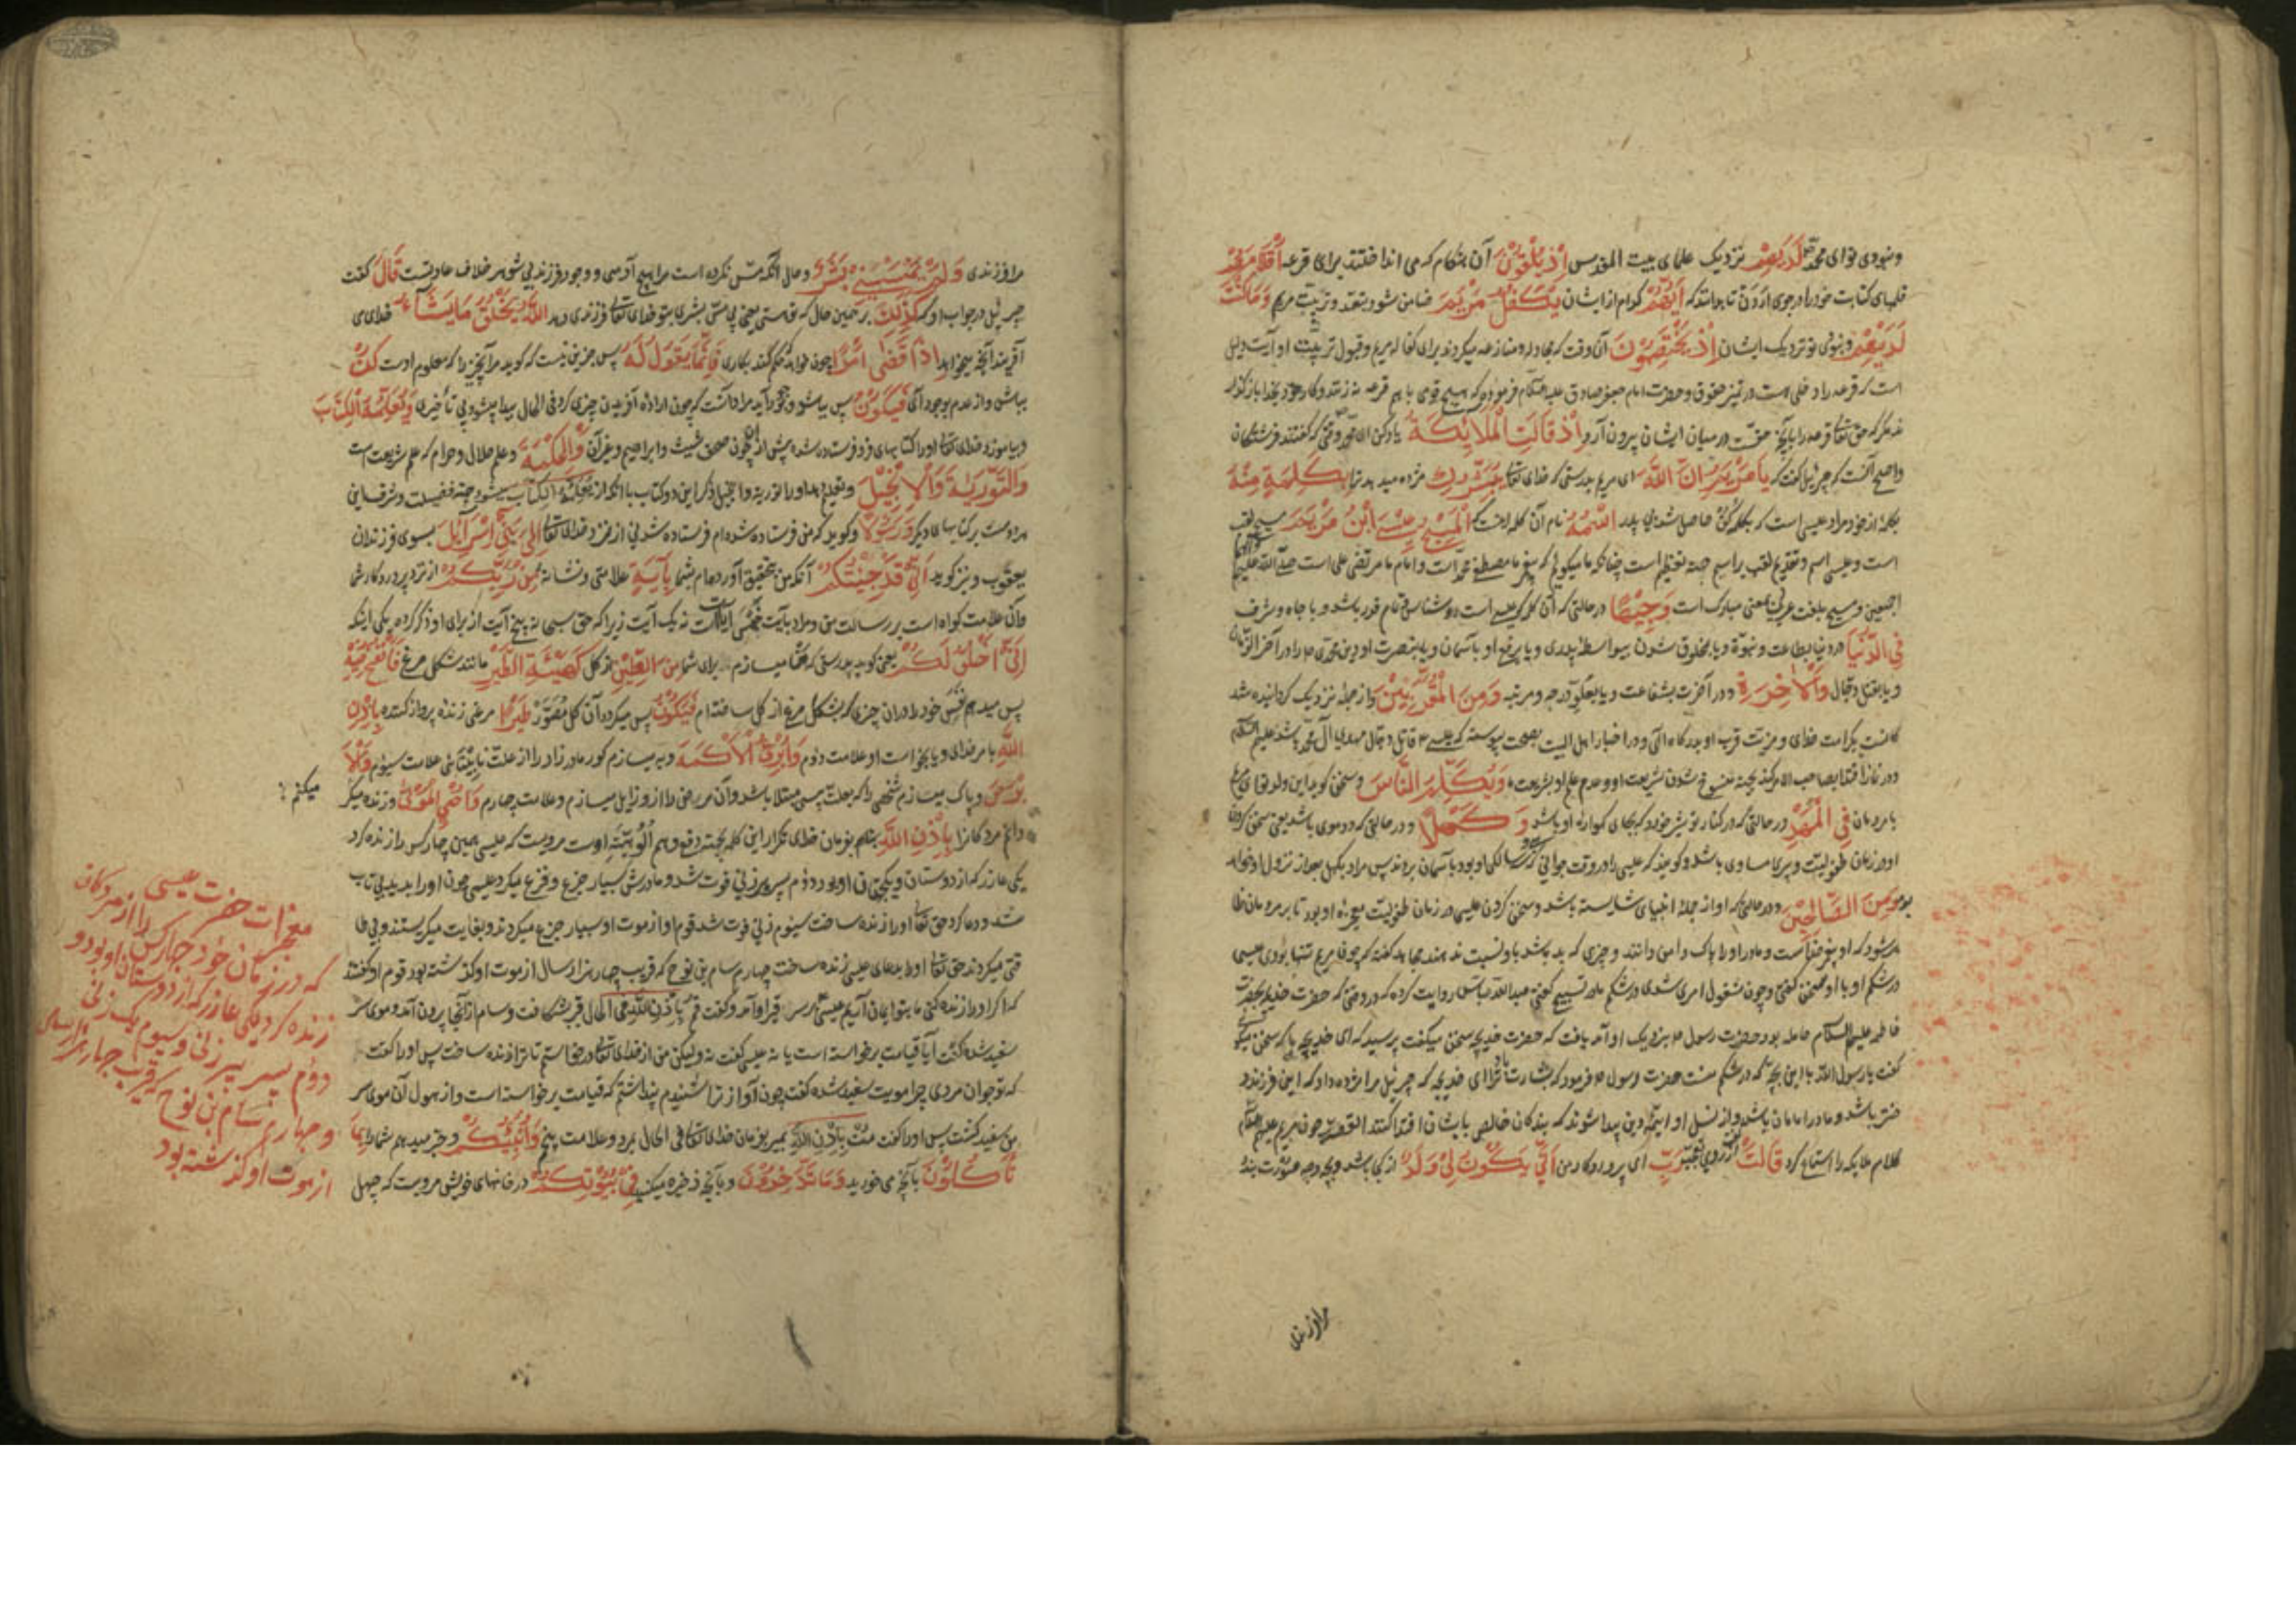 ونبودی توای محمد ص لَدَيْهِمْ نزدیک علمای بیت المقدس إِذْ يُلْقُونَ آن هنگام که می انداختند برای قرعه أَقْلَامَهُمْ
قلمهای کتابت خود را در جوی اردن تا بدانند که أَيُّهُمْ کدام از ایشان يَكْفُلُ مَرْيَمَ ضامن شود بتعهد و تربیت مریم وَمَا كُنْتَ
لَدَيْهِمْ ونبودی تو نزدیک ایشان إِذْ يَخْتَصِمُونَ آن وقت که مجادله و منازعه میکردند برای کفالة مریم و قبول تربیت او آیت دلیل
است که قرعه را دخلی است در تمیز حقوق و حضرت امام جعفر صادق علیه السلام فرموده که هیچ قومی با هم قرعه نزنند و کار خود بخدا باز گذارند
مگر که حق تعالی قرعه را بآنچه حق است در میان ایشان بیرون آرد إِذْ قَالَتِ الْمَلَائِكَةُ یاد کن ای محمد وقتی که گفتند فرشتگان
واصح آنست که جبرئیل گفت که يَا مَرْيَمُ إِنَّ اللَّهَ ای مریم بدرستی که خدای تعالی يُبَشِّرُكِ مژده میدهد ترا بِكَلِمَةٍ مِنْهُ
بکلمهٔ از خود مراد عیسی است که بکلمه کن حاصل شد بی پدر اسْمُهُ نام آن کلمه است الْمَسِيحُ عِيسَى ابْنُ مَرْيَمَ مسیح لقب
است و عیسی اسم و تقدیم لقب بر اسم جهة تعظیم است چنانکه ما میگوئیم که پیغمبر ما مصطفی محمد است و امام ما مرتضی علی است صلی الله علیهما
اجمعین و مسیح بلغت عربی بمعنی مبارک است وَجِيهًا در حالتی که آن کلمه که عیسی است روشناس و تمام قدر باشد و با جاه و شرف
فِي الدُّنْيَا در دنیا بطاعت و نبوة و یا بمخلوق شدن بیواسطهٔ پدری و یا برفع او بآسمان و یا بنصرت او دین محمدی ص را در آخر الزمان
و یا بقتل دجال وَالْآخِرَةِ و در آخرت بشفاعت و یا بعلو درجه و مرتبه وَمِنَ الْمُقَرَّبِينَ و از جمله نزدیک گردانیده شد
در نماز اقتدا بصاحب الامر کند بجهة منسوخ شدن شریعت او و عدم علم او بشریعت ما وَيُكَلِّمُ النَّاسَ و سخن گوید این ولد تو ای مریم
با مردمان فِي الْمَهْدِ در حالتی که در کنار تو شیر خورد که بجای گهواره او باشد وَكَهْلًا و در حالتی که دو موی باشد یعنی سخن کردن
او در زمان طفولیت و پیری مساوی باشد و گویند که عیسی را در وقت جوانی که سی و سه سالگی او بود بآسمان بردند پس مراد بکهل بعد از نزول او خواهد
بود وَمِنَ الصَّالِحِينَ و در حالتی که او از جملهٔ انبیای شایسته باشد و سخن کردن عیسی در زمان طفولیت معجزهٔ او بود تا بر مردمان ظا
هر شود که او پیغمبر خداست و مادر او را پاک دامن دانند و چیزی که بد باشد باو نسبت ندهند مجاهد گفته که چون مریم تنها بودی عیسی
در شکم او با او سخن گفتی و چون مشغول امری شدی در شکم مادر تسبیح گفتی عبدالله عباس روایت کرده که در وقتی که حضرت خدیجه بحضرت
فاطمه علیها السلام حامله بود حضرت رسول ص بنزدیک او آمد یافت که حضرت خدیجه سخن میگفت پرسید که ای خدیجه با که سخن میگو
گفت یا رسول الله با این بچه که در شکم منست حضرت رسول ص فرمود که بشارت باد ترا ای خدیجه که جبرئیل مرا مژده داد که این فرزند
دختر باشد و مادر امامان باشد و از نسل او ائمهٔ دین پیدا شوند که بندگان خالص بایشان اقتدا کنند القصه چون مریم علیها السلام
کلام ملایکه را استماع کرد قَالَتْ از روی تعجب رَبِّ ای پروردگار من أَنَّى يَكُونُ لِي وَلَدٌ از کجا باشد و بچه وجه صورت بندد
مرا فرزندی
مرا فرزندی وَلَمْ يَمْسَسْنِي بَشَرٌ و حال آنکه مس نکرده است مرا هیچ آدمی و وجود فرزند بی شوهر خلاف عادتست قَالَ گفت
جبرئیل در جواب او که كَذَلِكِ بر همین حال که تو هستی یعنی بی مس بشری بتو خدای تعالی فرزندی دهد اللَّهُ يَخْلُقُ مَا يَشَاءُ خدای می
آفریند آنچه میخواهد إِذَا قَضَى أَمْرًا چون خواهد و حکم کند بکاری فَإِنَّمَا يَقُولُ لَهُ پس جز این نیست که گوید مر آنچیز را که معلوم اوست كُنْ
بباش و از عدم بوجود آی فَيَكُونُ پس بباشد و بوجود آید مراد آنست که چون ارادهٔ آفریدن چیزی کرد فی الحال پیدا میشود بی تأخیری وَيُعَلِّمُهُ الْكِتَابَ
و بیاموزد خدای تعالی او را کتابهای فرو فرستاده شده پیش از او چون صحف شیث و ابراهیم و غیر آن وَالْحِكْمَةَ و علم حلال و حرام که علم شریعت است
وَالتَّوْرَيةَ وَالْإِنْجِيلَ و تعلیم دهد او را توریة و انجیل ذکر این دو کتاب با آنکه از يُعَلِّمُهُ الْكِتَابَ میشود جهة فضیلت و شرف این
هر دوست بر کتابهای دیگر وَرَسُولًا و گوید که من فرستاده شده‌ام فرستاده شدنی از نزد خدای تعالی إِلَى بَنِي إِسْرَائِيلَ بسوی فرزندان
یعقوب و نیز گوید أَنِّي قَدْ جِئْتُكُمْ آنکه من بتحقیق آورده‌ام بشما بِآيَةٍ علامتی و نشانهٔ مِنْ رَبِّكُمْ از نزد پروردگار شما
و آن علامت گواه است بر رسالت من و مراد بآیت جنس آیات است نه یک آیت زیرا که حق سبحانه پنج آیت از برای او ذکر کرده یکی اینکه
أَنِّي أَخْلُقُ لَكُمْ یعنی گوید بدرستی که من میسازم برای شما مِنَ الطِّينِ از گل كَهَيْئَةِ الطَّيْرِ مانند شکل مرغ فَأَنْفُخُ فِيهِ
پس میدهم نفس خود را در آن چیزی که بشکل مرغ از گل ساخته‌ام فَيَكُونُ پس میگردد آن گل مصور طَيْرًا مرغی زنده پرواز کننده بِإِذْنِ
اللَّهِ بامر خدای و یا بخواست او علامت دوم وَأُبْرِئُ الْأَكْمَهَ و به میسازم کور مادر زاد را از علت نابینائی علامت سیوم وَالْأَ
بْرَصَ و پاک میسازم شخصی را که بعلت پیسی مبتلا باشد و آن مرض را از او زایل میسازم و علامت چهارم وَأُحْيِي الْمَوْتَى و زنده میگر
دانم مردگانرا بِإِذْنِ اللَّهِ بفرمان خدای تکرار این کلمه بجهة دفع وهم الوهیت اوست مرویست که عیسی همین چهار کس را زنده کرد
یکی عازر که از دوستان و یکجهتان او بود دوم پسر پیرزنی فوت شد و مادرش بسیار جزع و فزع میکرد عیسی چون او را بدید بی تاب
شد و دعا کرد حق تعالی او را زنده ساخت سیوم زنی فوت شد قوم او از موت او بسیار جزع میکردند و بغایت میگریستند و بی طا
قتی میکردند حق تعالی او را بدعای عیسی زنده ساخت چهارم سام بن نوح که قریب چهار هزار سال از موت او گذشته بود قوم او گفتند
که اگر او را زنده کنی ما بتو ایمان آریم عیسی بر سر قبر او آمد و گفت قم بإذن الله فی الحال قبر شکافت و سام از آنجا بیرون آمد و موی سر
سفید شده گفت آیا قیامت برخواسته است یا نه عیسی گفت نه ولیکن من از خدای تعالی درخواستم تا ترا زنده ساخت پس او را گفت
که تو جوان مردی چرا مویت سفید شده گفت چون آواز ترا شنیدم پنداشتم که قیامت برخواسته است و از هول آن موی سر
من سفید گشت پس او را گفت مت بإذن الله بمیر بفرمان خدای تعالی فی الحال بمرد و علامت پنجم وَأُنَبِّئُكُمْ و خبر میدهم شما را بِمَا
تَأْكُلُونَ بآنچه می خورید وَمَا تَدَّخِرُونَ و بآنچه ذخیره میکنید فِي بُيُوتِكُمْ در خانهای خویش مرویست که چهل
میکنم
معجزات حضرت عیسی
که در زمان خود چهار کس را از مردگان
زنده کرد یکی عازر که از دوستان او بود و
دوم پسر پیر زنی و سیوم یک زنی
و چهارم سام بن نوح که قریب چهار هزار سال
از موت او گذشته بود